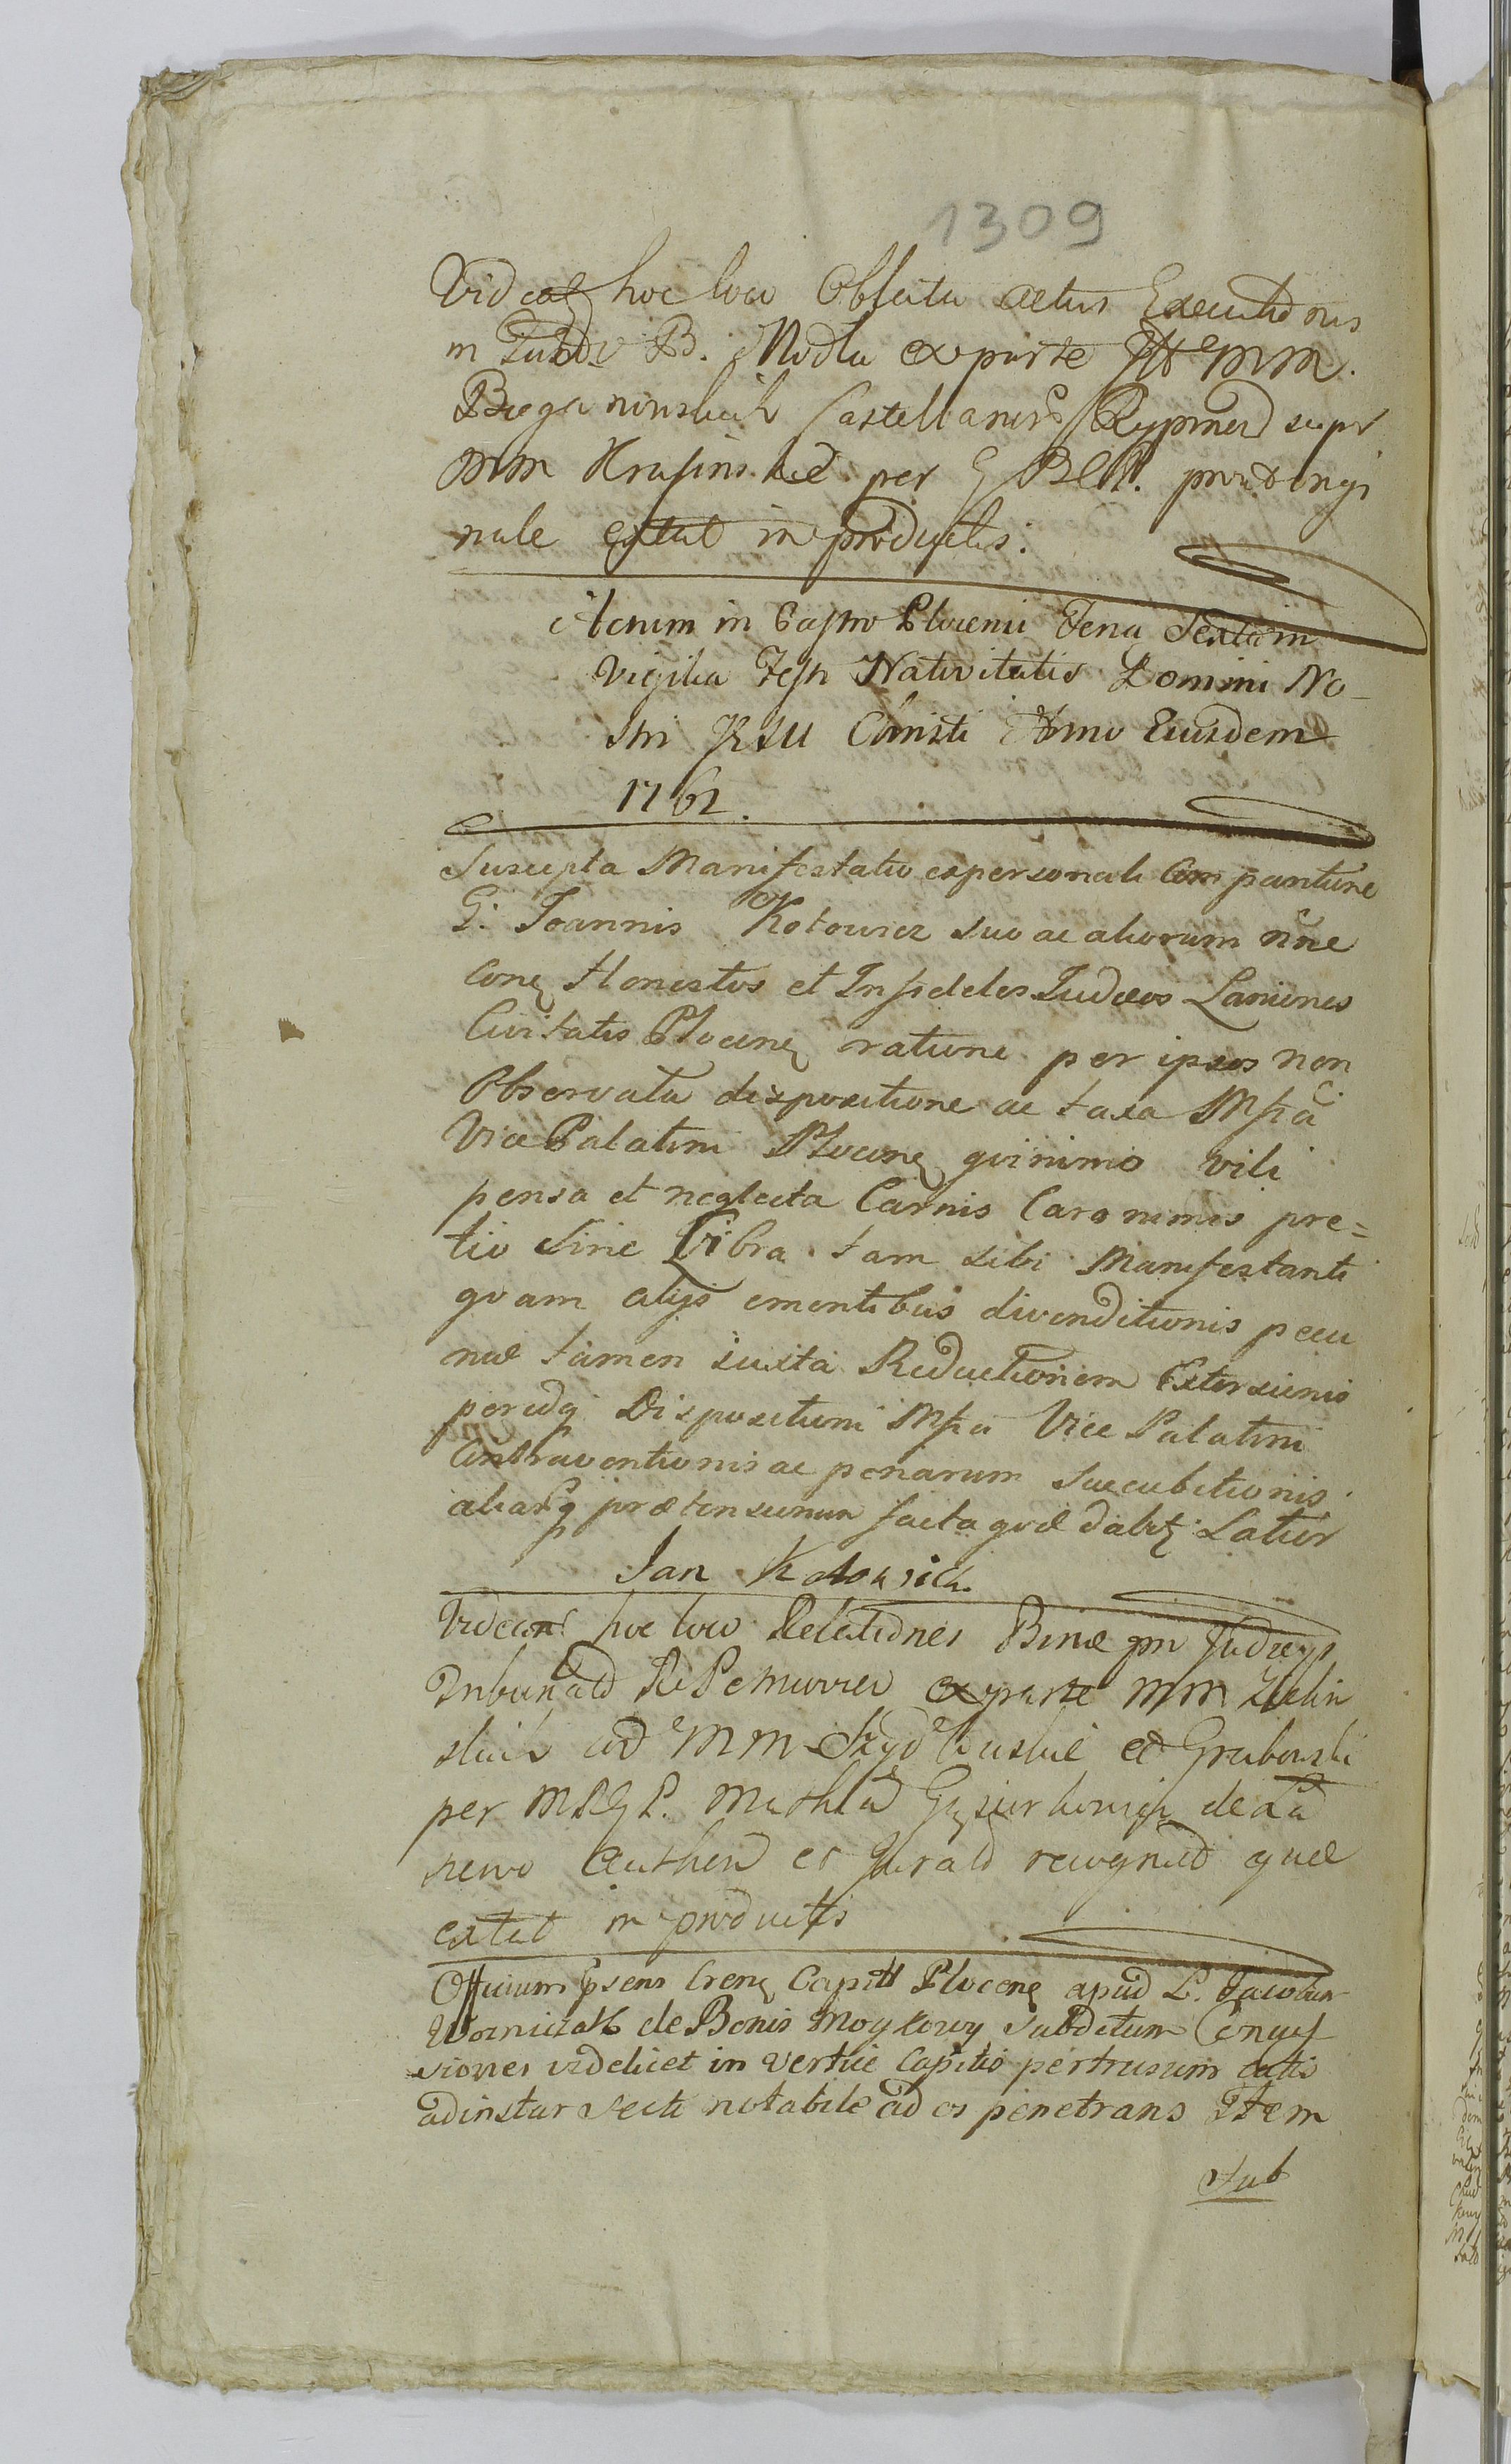 1309
Videat hoc loco Oblata actus Executionis
in B. Modła ex parte MM.
Bieganowskich Castellanorum Rypinen super
MM Krasinskie per G prout origi
nale extat in productis.
Actum in Castro Plocensi Feria Sexta in
Vigilia Festi Nativitatis Domini No-
stri Jesu Christi Anno Eiusdem
1762.
Suscepta Manifestatio ex personali Comparitione
G. Joannis Kotowicz suo ac aliorum nñe
Conq Honestos et Infideles Judæos Laniones
Civitatis Plocenq ratione per ipsos non
Observata dispositione ac taxa Mfci
Vice Palatini Plocenq quinimo vili
pensa et neglecta Carnis Caro nimis pre=
tio sine Libra tam sibi Manifestanti
quam alijs ementibus divenditionis pecu
niæ tamen iuxta Reductionem Extorsionis
peridq Dispositioni Mfci Vice Palatini
Contraventionis ac penarum succubitionis
aliarq prætensionum facta quæ dabitq Latior
Jan Kotowicz
Videant hoc loco Relationes Binæ pri
Tribunal ex parte MM Zielin
skich ad MM Szydłowskie et Grabowski
per
authen et Jurati recognit quæ
extat in productis
Officium psens Crenq Capitl Plocenq apud L. Jacobum
Wozniczak de Bonis Moykowy subditum Conqus
siones videlicet in vertice Capitis pertrusum cutis
adinstar secti notabile ad os penetrans Item
Sub